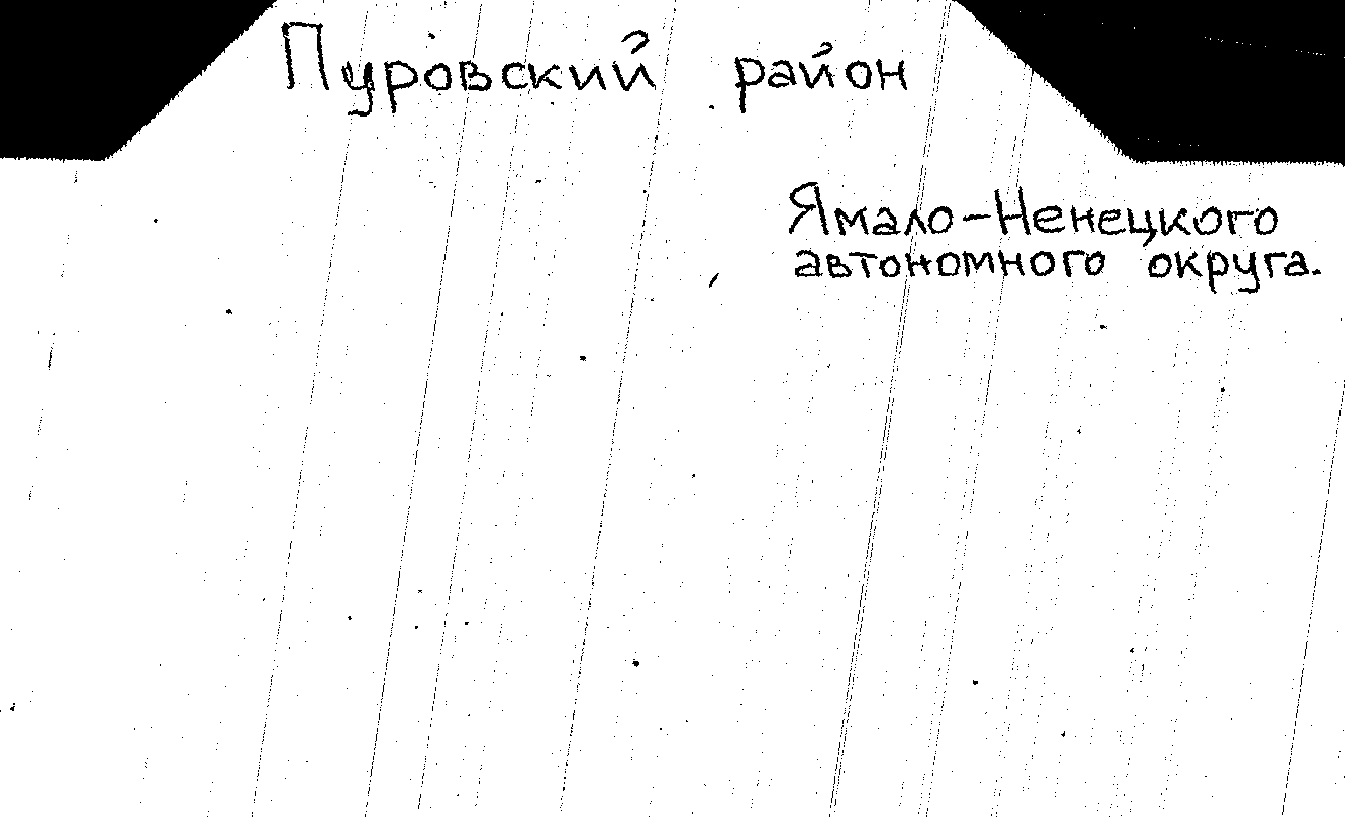 Пуровский район
Ямало-Ненецкого
автономного округа.